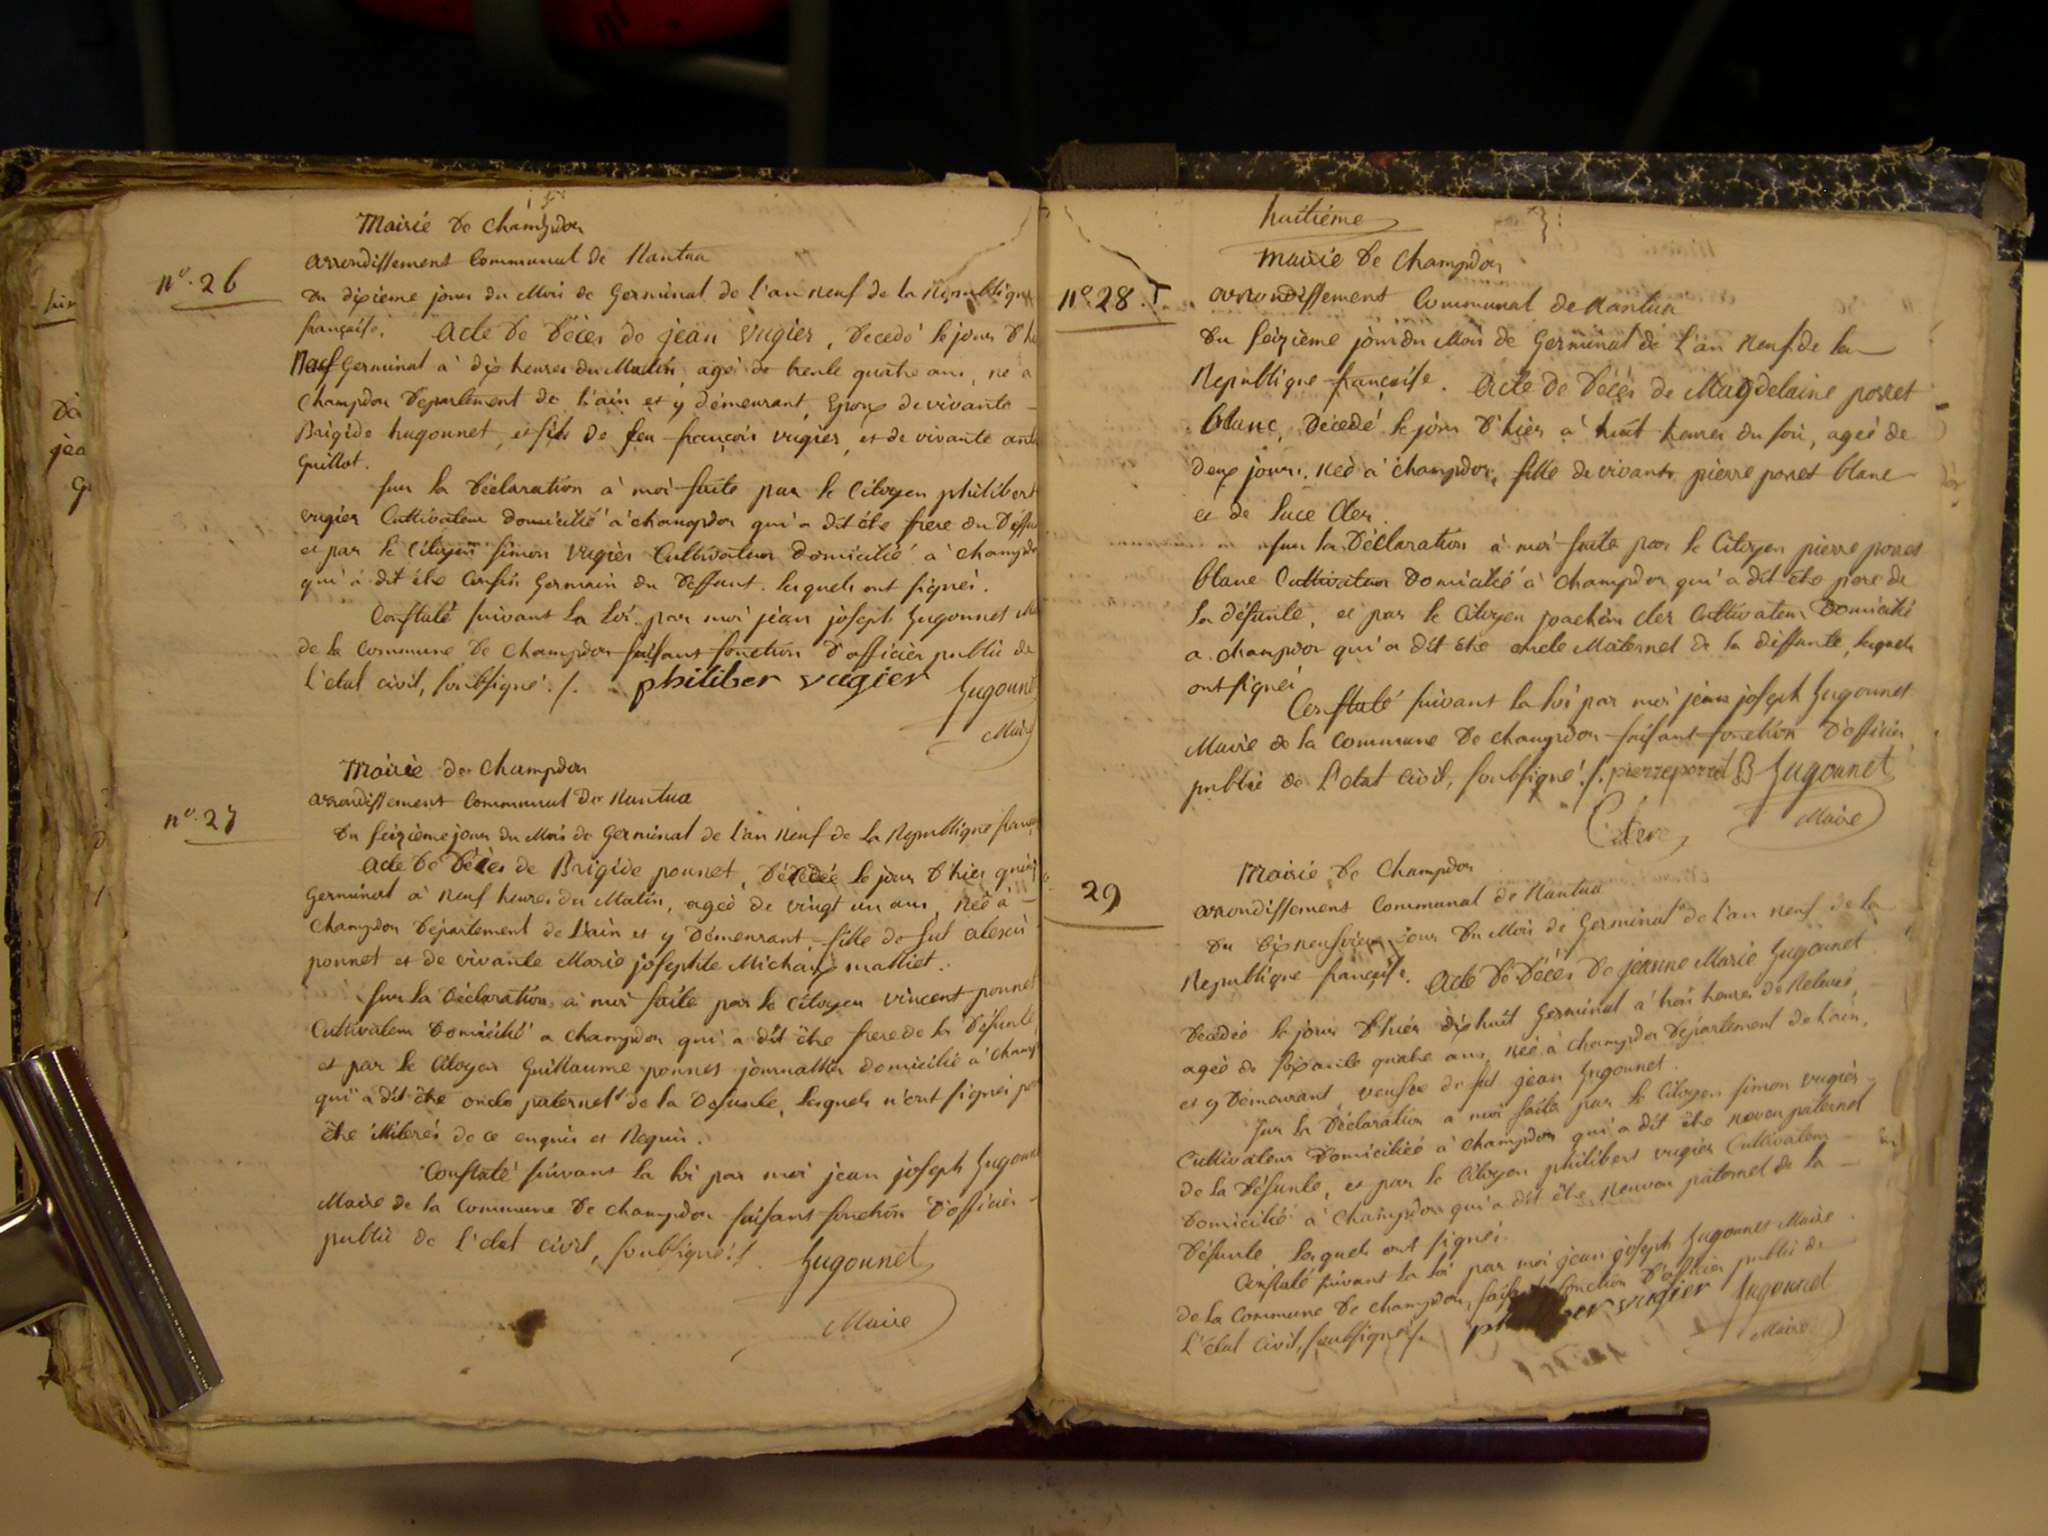 Mairie De Champdor
arrondissement Communal de Nantua
n°. 26
Du dixieme jour du Mois de Germinal de l'an neuf de la Republique
française. Acte De Décès de jean Vugier, Decedé le jour D'hi
Neuf Germinal à dix heures du Matin, agé de trente quatre ans, né a
Champdor Departement de l'ain et y démeurant, Epoux de vivante
Brigide hugonnet, et fils de feu françois vugier, et de vivante
Guillot.
sur la Déclaration à moi faite par le Citoyen philibert
vugier Cultivateur Domicilié à champdor qui a dit étre frere du Deffu
et par le Citoyen simon Vugier Cultivateur Domicilié à champdo
qui a dit étre Cousin Germain du Deffunt. lesquels ont signé.
Constaté suivant la loi par moi jean joseph hugonnet
de la Commune De Champdor faisant fonction D'officier public de
l'etat civil, soubsigné ./. philiber vugier hugonnet
Maire
Mairie de Champdor
arrondissement Communal de Nantua
n°. 27
Du seizieme jour du Mois de Germinal de l'an neuf de la Republique
Acte De Décès de Brigide ponnet, Décédée le jour D'hier
Germinal à neuf heures du Matin, ageé de vingt un ans, neé à
Champdor Département de l'ain et y Démeurant, fille de fut
ponnet et de vivante Marie josephte Michaux maillet.
sur la Déclaration à moi faite par le Citoyen vincent ponnet
Cultivateur Domicilié a champdor qui a dit être frere de la Défunte,
et par le Citoyen Guillaume ponnet journallier domicilié à champ
qui a dit être oncle paternel de la Defunte, lesquels n'ont signé pour
être illiterés de ce enquis et Requis.
Constaté suivant la loi par moi jean joseph hugonnet
Maire de la Commune De champdor faisant fonction D'officier
public de l'etat civil, soubsigné ./. hugonnet
Maire
huitiéme
Mairie De Champdor
n°. 28
arrondissement Communal de Nantua
Du seizième jour du Mois de Germinal de l'an neuf de la
Republique française. Acte de Décès de Magdelaine porret
blanc, Décedé le jour D'hier à huit heures du soir, ageé de
deux jours. neé à champdor, fille de vivants pierre porret blanc
et de Luce
sur la Déclaration à moi faite par le Citoyen pierre porret
blanc Cultivateur Domicilié à champdor qui a dit être pere de
la défunte, et par le Citoyen joachim Cultivateur Domicilié
a champdor qui a dit être oncle Maternel de la deffunte, lesquels
ont signé
Constaté suivant la loi par moi jean joseph hugonnet
Maire de la Commune De champdor faisant fonction D'officier
public de l'etat Civil, soubsigné ./. pierre porret B hugonnet
Maire
29
Mairie De Champdor
arrondissement Communal de Nantua
Du dix neufvieme jour Du Mois de Germinal de l'an neuf de la
Republique française. Acte De Décès De jeanne Marie hugonnet
Decedée le jour D'hier dix huit Germinal à trois heures de Relevée,
ageé de soixante quatre ans, neé à champdor Département de l'ain,
et y Démeurant, veufve de fut jean hugonnet.
sur la Déclaration a moi faite par le Citoyen simon vugier
Cultivateur Domiciliéé à champdor qui a dit être neveu paternel
de la Défunte, et par le Citoyen philibert vugier Cultivateur
Domicilié à Champdor qui a dit être neuveu paternel de la
Défunte lesquels ont signé.
Constaté suivant la loi par moi jean joseph hugonnet Maire
de la Commune De champdor, faisant fonction D'officier public de
l'état Civil, soubsigné ./. vugier hugonnet
Maire